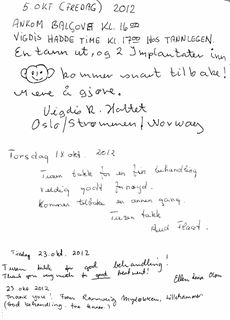 5. OKT (FREDAG) 2012
ANKOM BALÇOVE KL. 16
VIGDIS HADDE TIME KL. 17 HOS TANNLEGEN.
En tann ut, og 2 Implantater inn
kommer snart tilbake!
Mere å gjøre.
Vigdis R.
Oslo/Strømmen/Norway
Torsdag 18 okt. 2012
Tusen takk for en fin behandling
veldig godt fornøyd.
Kommer tilbake en annen gang.
Tusen takk
Tirsdag 23. okt. 2012
Tusen takk for god behandling!
Thank you very much for good treatment!
Ellen Olsen
23 okt 2012
Thank you! From Lillehammer
(God behandling.